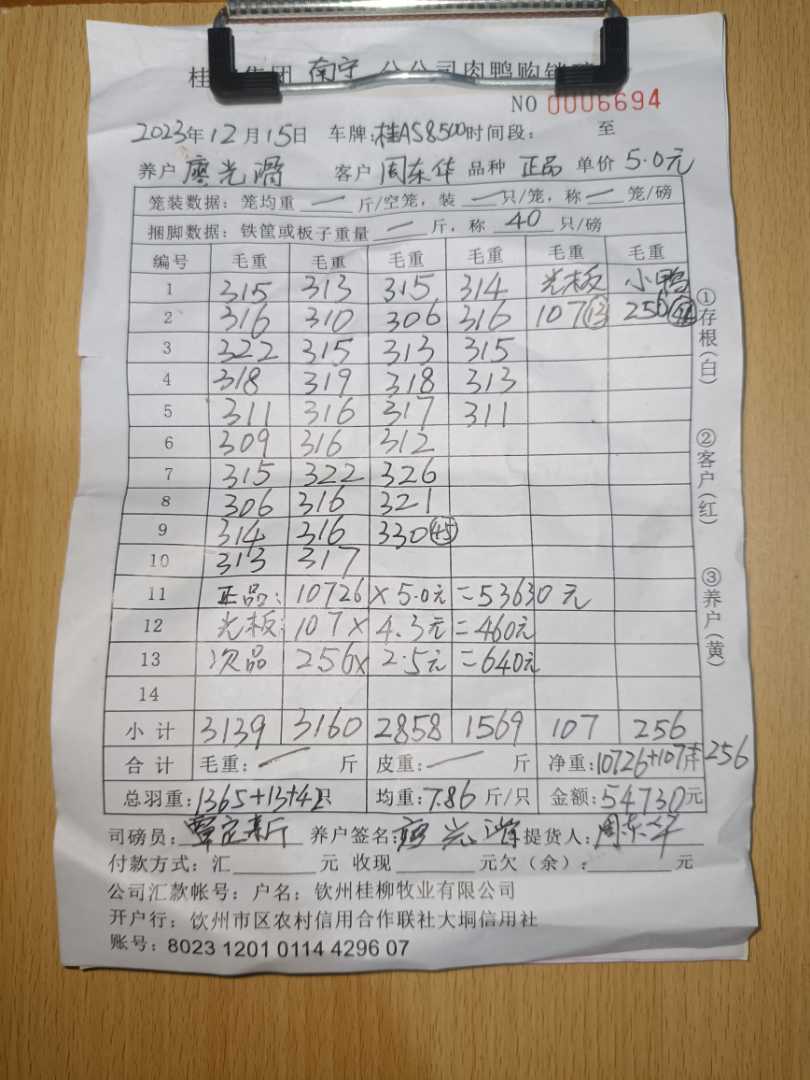 桂 集团 南宁 分公司肉鸭购销
NO 0006694
2023年12月15日 车牌:桂AS8500时间段: 至
养户 廖光 客户 周东华 品种 正品 单价 5.0元
笼装数据: 笼均重 — 斤/空笼, 装 — 只/笼, 称 — 笼/磅
捆脚数据: 铁筐或板子重量 — 斤, 称 40 只/磅
编号 毛重 毛重 毛重 毛重 毛重 毛重
1 315 313 315 314 光板 小鸭
2 316 310 306 316 107⑬ 256
3 322 315 313 315
4 318 319 318 313
5 311 316 317 311
6 309 316 312
7 315 322 326
8 306 316 321
9 314 316 330㊺
10 313 317
11 正品: 10726 × 5.0元 = 53630元
12 光板: 107 × 4.3元 = 460元
13 次品 256× 2.5元 = 640元
14
小计 3139 3160 2858 1569 107 256
合计 毛重: — 斤 皮重: — 斤 净重: 10726+107+256
总羽重: 1365+13+42只 均重: 7.86 斤/只 金额: 54730元
司磅员: 养户签名: 提货人: 周东华
付款方式: 汇 元 收现 元欠(余): 元
公司汇款帐号: 户名: 钦州桂柳牧业有限公司
开户行: 钦州市区农村信用合作联社大垌信用社
账号: 8023 1201 0114 4296 07
①存根(白)
②客户(红)
③养户(黄)